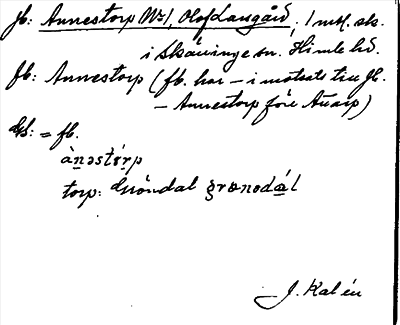 jb: Annestorp No 1, Olof Larsgård, 1 mtl. sk.
i Skällinge sn. Himle hd.
fb: Annestorp (fb. har – i motsats till jb.
– Annestorp före Åkarp)
Us: = fb.
ànəstórp
torp: Gröndal
J. Kalén